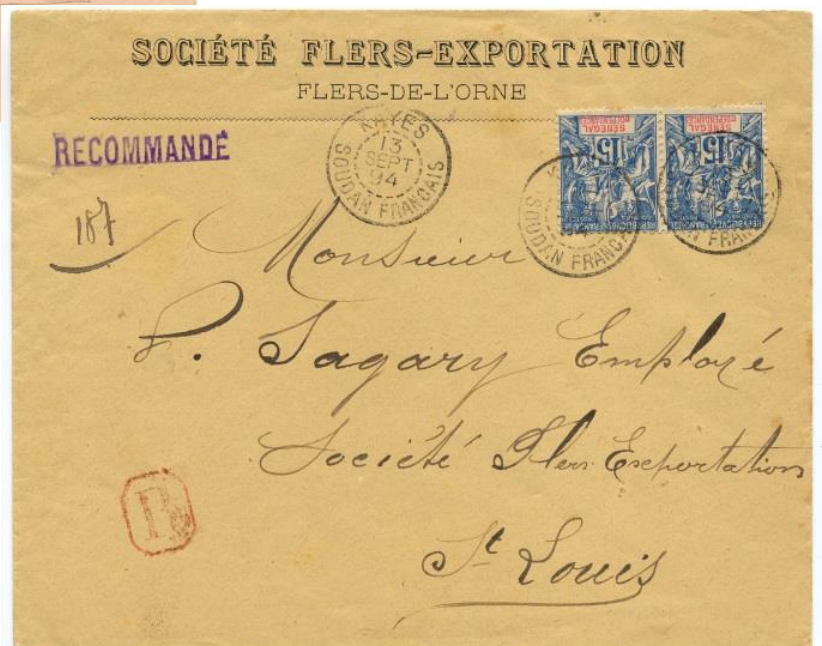 SOCIÉTÉ FLERS-EXPORTATION
FLERS-DE-L'ORNE
RECOMMANDÉ
KAYES
13
SEPT
94
SOUDAN FRANCAIS
SÉNÉGAL
ET DÉPENDANCES
15
SÉNÉGAL
ET DÉPENDANCES
15
SOUDAN FRANCAIS
187
Monsieur
P. Sagary Employé
Société Flers Exportation
St Louis
R